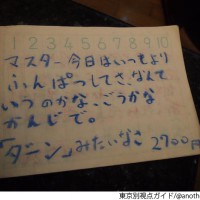 1 2 3 4 5 6 7 8 9 10
マスター今日はいつもより
ふんぱつしてさ、なんて
いうのかな、ごうかな
かんじで。
「ダーン」みたいなさ 2700円
東京別視点ガイド/@anoth